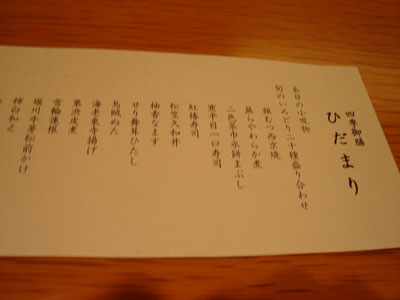 四季御膳
ひだまり
本日の小吸物
旬のいろどり二十種盛り合わせ
銀むつ西京焼
蕪らやわらか煮
二色茶巾氷餅まぶし
寒平目一口寿司
紅椿寿司
松笠久和井
柚香なます
せり舞茸ひたし
鳥賊ぬた
海老東寺揚げ
栗渋皮煮
雪輪蓮根
堀川牛蒡松前かけ
棒白和え